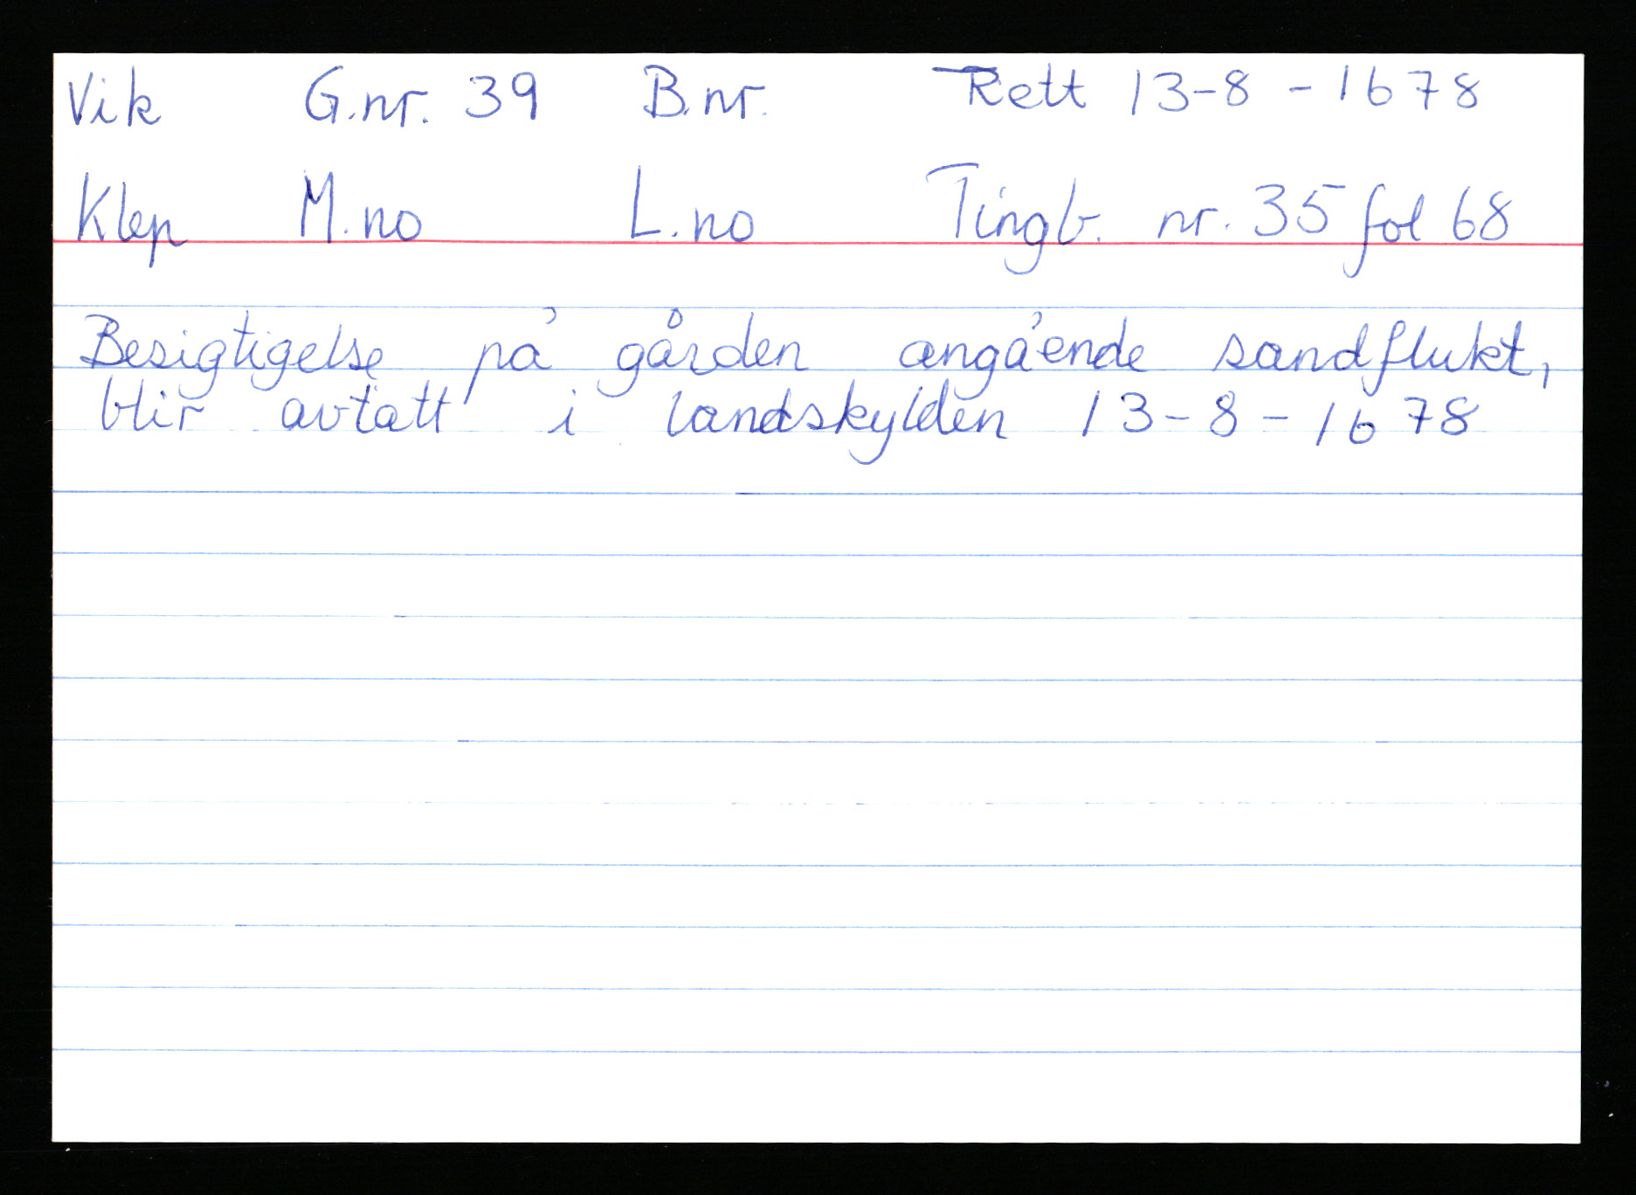 Vik G.nr. 39 B.nr. Rett 13-8-1678
Klep M.no L.no Tingb. nr. 35 fol 68
Besigtigelse på gården angående sandflukt,
blir avtatt i landskylden 13-8-1678